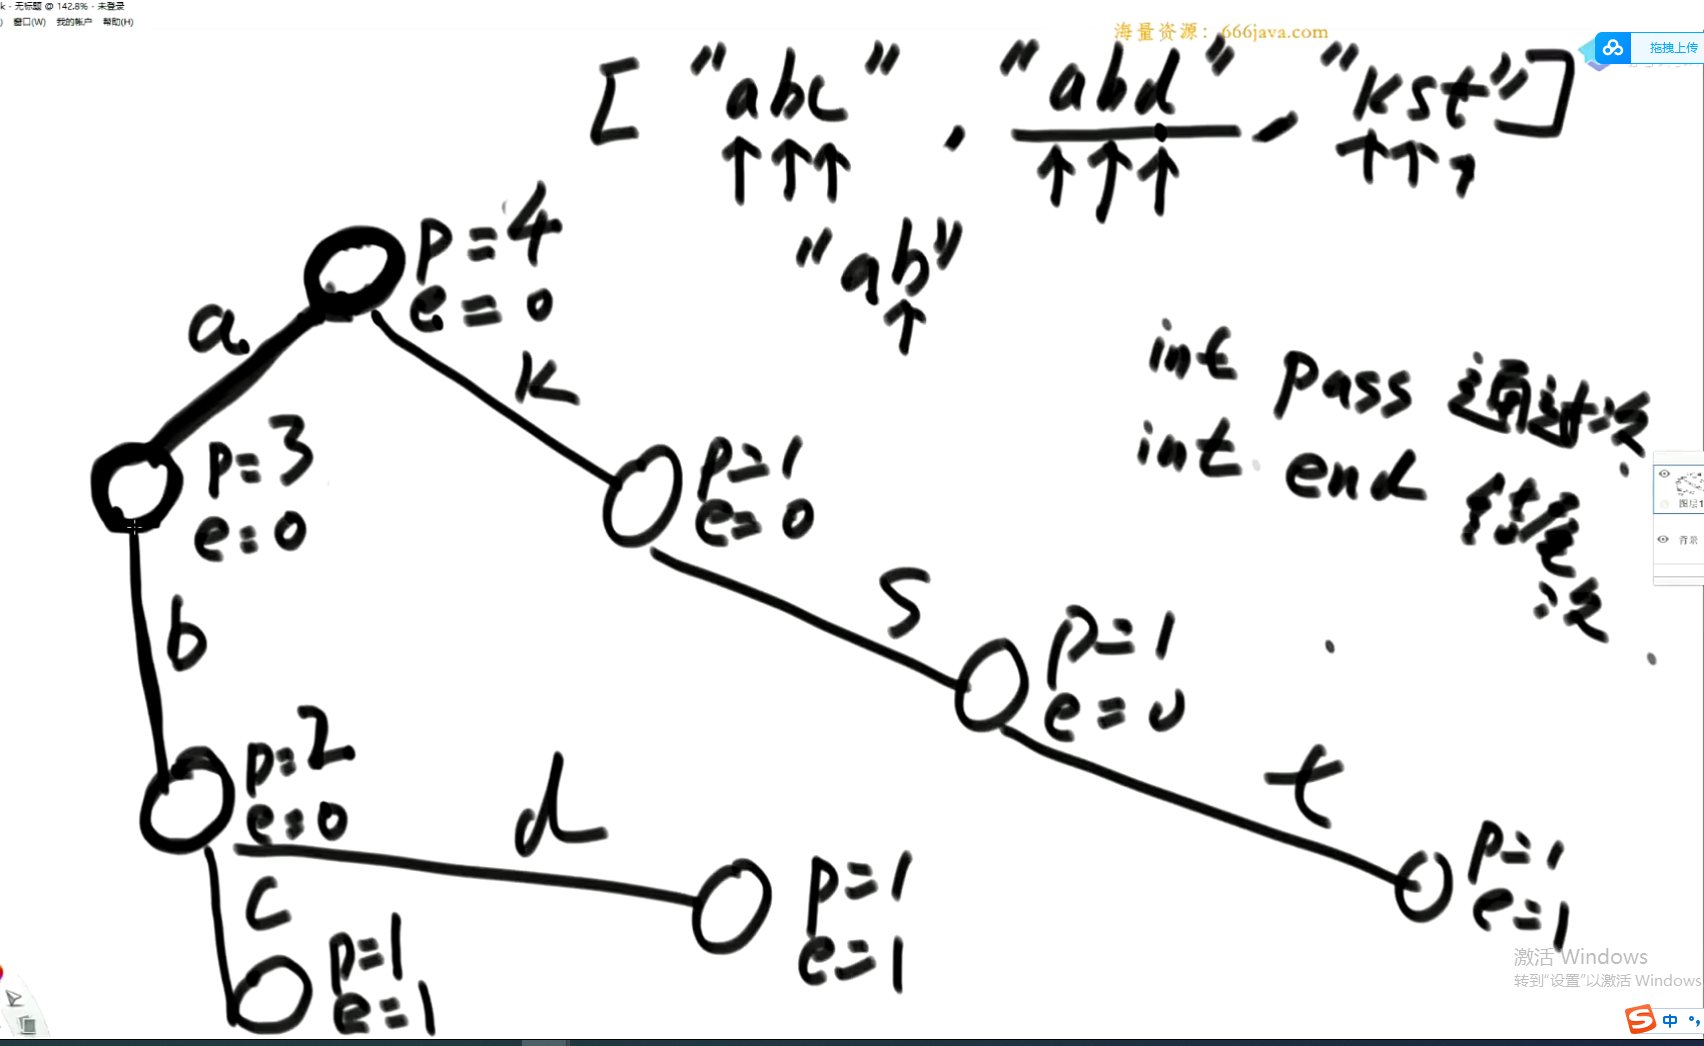 k - 无标题 @ 142.8% - 未登录
) 窗口(W) 我的帐户 帮助(H)
海量资源：666java.com
拖拽上传
["abc", "abd", "kst"]
"ab"
p=4
e=0
a
k
int pass 通过次
int end 结尾次
p=3
e=0
p=1
e=0
图层1
背景
b
s
p=1
e=0
p=2
e=0
d
t
c
p=1
e=1
p=1
e=1
p=1
e=1
激活 Windows
转到“设置”以激活 Windows
中